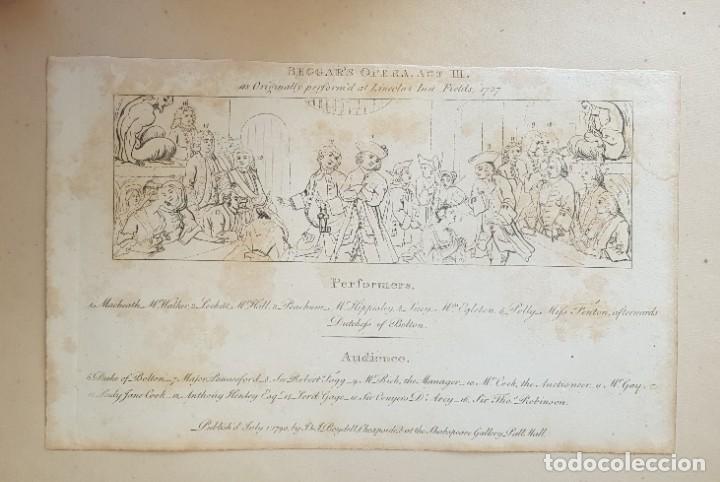 BEGGAR'S OPERA, ACT III.
as Originally perform'd at Lincolns Inn Fields, 1727
Performers.
1. Macheath Mr. Walker, 2. Lockit Mr. Hall, 3. Peachum Mr. Hippisley, 4. Lucy Mrs. Egleton, 5. Polly Miss Fenton, afterwards
Dutchess of Bolton.
Audience.
6. Duke of Bolton _ 7. Major Pounceford _ 8. Sir Robert Fagg _ 9. Mr. Rich, the Manager _ 10. Mr. Cock, the Auctioneer _ 11. Mr. Gay _
12. Lady Jane Cook _ 13. Anthony Henley Esqr. _ 14. Lord Gage _ 15. Sir Conyers D'Arcy _ 16. Sir Thos. Robinson.
Publish'd July 1. 1790, by J. & J. Boydell, Cheapside, & at the Shakspeare Gallery Pall Mall.
todocoleccion